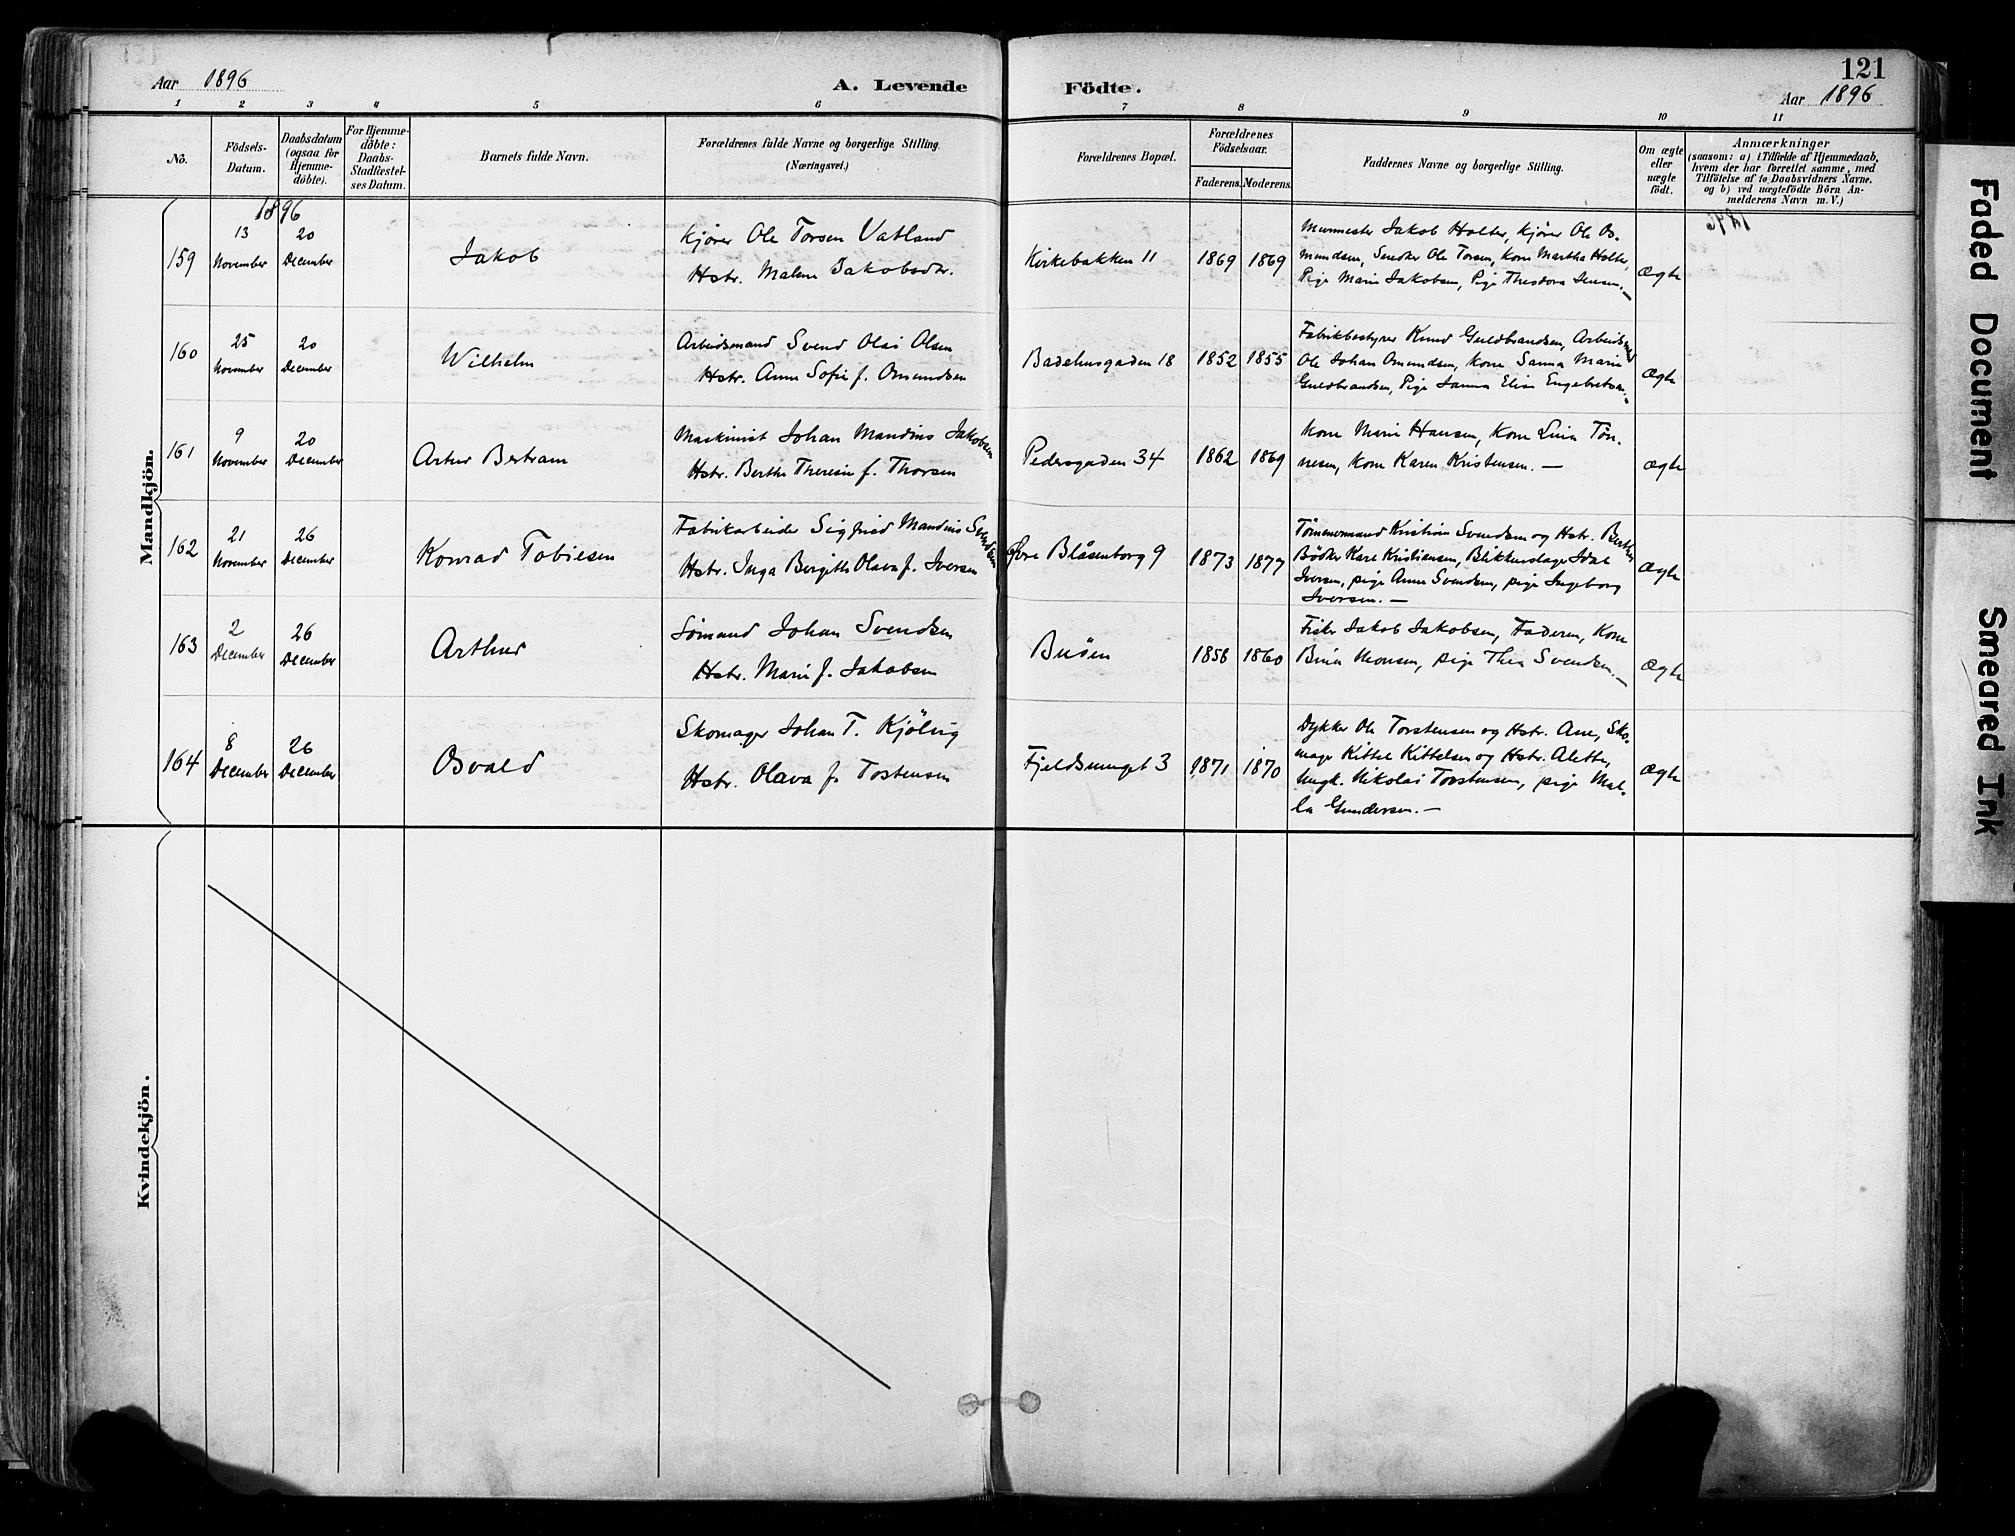 121
Aar 1896
A. Levende Födte.
Aar 1896
1 2 3 4 5 6 7 8 9 10 11
No.
Födsels-
Datum.
Daabsdatum
(ogsaa for
Hjemme-
döbte).
For Hjemme-
döbte:
Daabs-
Stadfestel-
ses Datum.
Barnets fulde Navn.
Forældrenes fulde Navne og borgerlige Stilling.
(Næringsvei.)
Forældrenes Bopæl.
Forældrenes
Födselsaar.
Faderens. Moderens.
Faddernes Navne og borgerlige Stilling.
Om ægte
eller
uægte
födt.
Anmærkninger
(saasom: a) i Tilfælde af Hjemmedaab,
hvem der har forrettet samme, med
Tilföielse af to Daabsvidners Navne.
og b) ved uægtefödte Börn An-
melderens Navn m. V.)
Mandkjön.
1896
159
13
November
20
December
Jakob
Kjører Ole Torsen Vatland
Hstr. Malene Jakobsdtr.
Kirkebakken 11
1869 1869
Murmester Jakob Holter, Kjører Ole Os-
mundsen, Snedker Ole Torsen, Kone Martha Holter,
Pige Marie Jakobsen, Pige Theodora Jensen.—
Ægte
160
25
November
20
December
Wilhelm
Arbeidsmand Svend Olai Olsen
Hstr. Anne Sofie f. Omundsen
Badehusgaden 18
1852 1855
Fabrikbestyrer Knud Guldbrandsen, Arbeidsmand
Ole Johan Omundsen, Kone Sanna Marie
Guldbrandsen, Pige Janna Elise Engebretsen.—
Ægte
161
9
November
20
December
Artur Bertram
Maskinist Johan Mandius Jakobsen
Hstr. Berthe Theresia f. Thorsen
Pedersgaden 34
1862 1869
Kone Marie Hansen, Kone Lina Tön-
nesen, Kone Karen Kristensen.—
Ægte
162
21
November
26
December
Konrad Tobiesen
Fabrikarbeider Sigfried Mandius Svendsen
Hstr. Inga Birgitte Olava f. Iversen
Øvre Blåsenborg 9
1873 1877
Tömmermand Kristian Svendsen og Hstr. Berthe,
Bödker Karl Kristiansen, Blikkenslager Idal
Iversen, pige Anne Svendsen, pige Ingeborg
Iversen.—
Ægte
163
2
December
26
December
Arthur
Sömand Johan Svendsen
Hstr. Marie f. Jakobsen
Buöen
1858 1860
Fisker Jakob Jakobsen, Faderen, Kone
Bina Monsen, pige Thea Svendsen.—
Ægte
164
8
December
26
December
Osvald
Skomager Johan T. Kjölvig
Hstr. Olava f. Tostensen
Fjeldsmuget 3
1871 1870
Dykker Ole Torstensen og Hstr. Ane, Sko-
mager Kittel Kittelsen og Hstr. Alette,
Ungk. Nikolai Torstensen, pige Mal-
la Gundersen.—
Ægte
Kvindekjön.
Faded Document
Smeared Ink